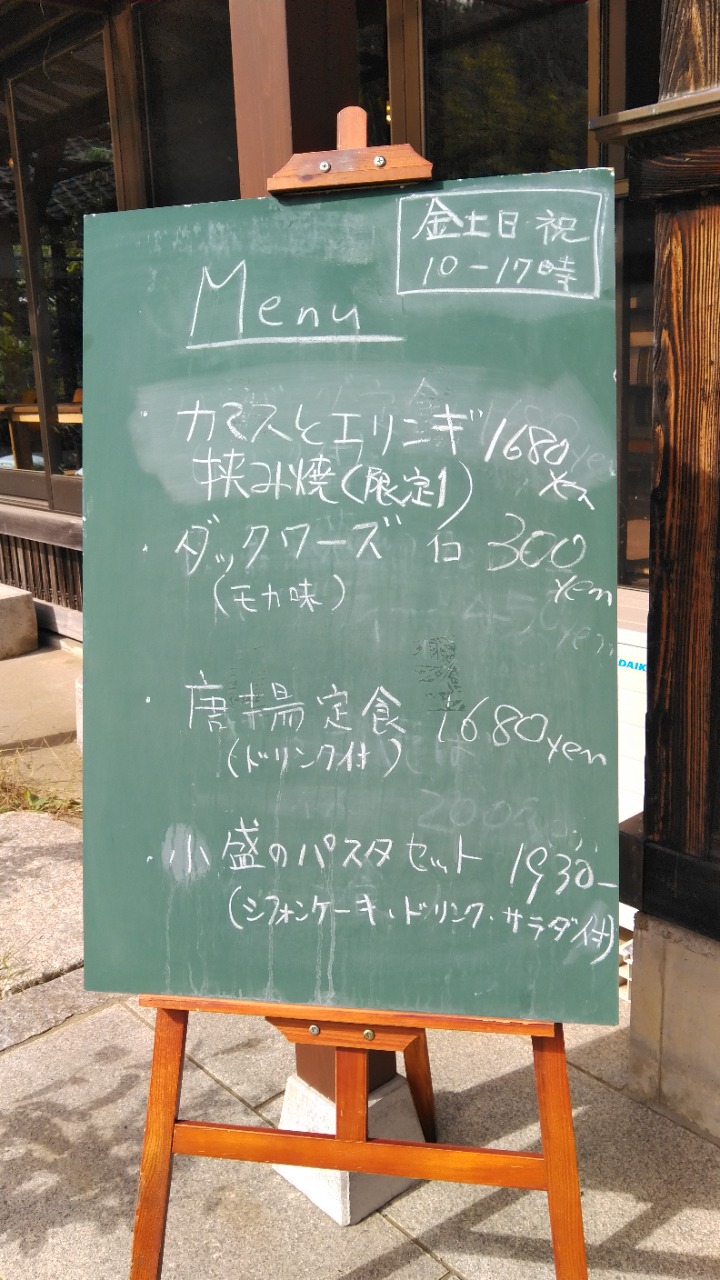 金土日・祝
10-17時
Menu
・カマスとエリンギ 1680
挟み焼(限定1) yen
・ダックワーズ 300
(モカ味) yen
・唐揚定食 1680yen
(ドリンク付)
・小盛のパスタセット 1930-
(シフォンケーキ・ドリンク・サラダ付)
DAIK